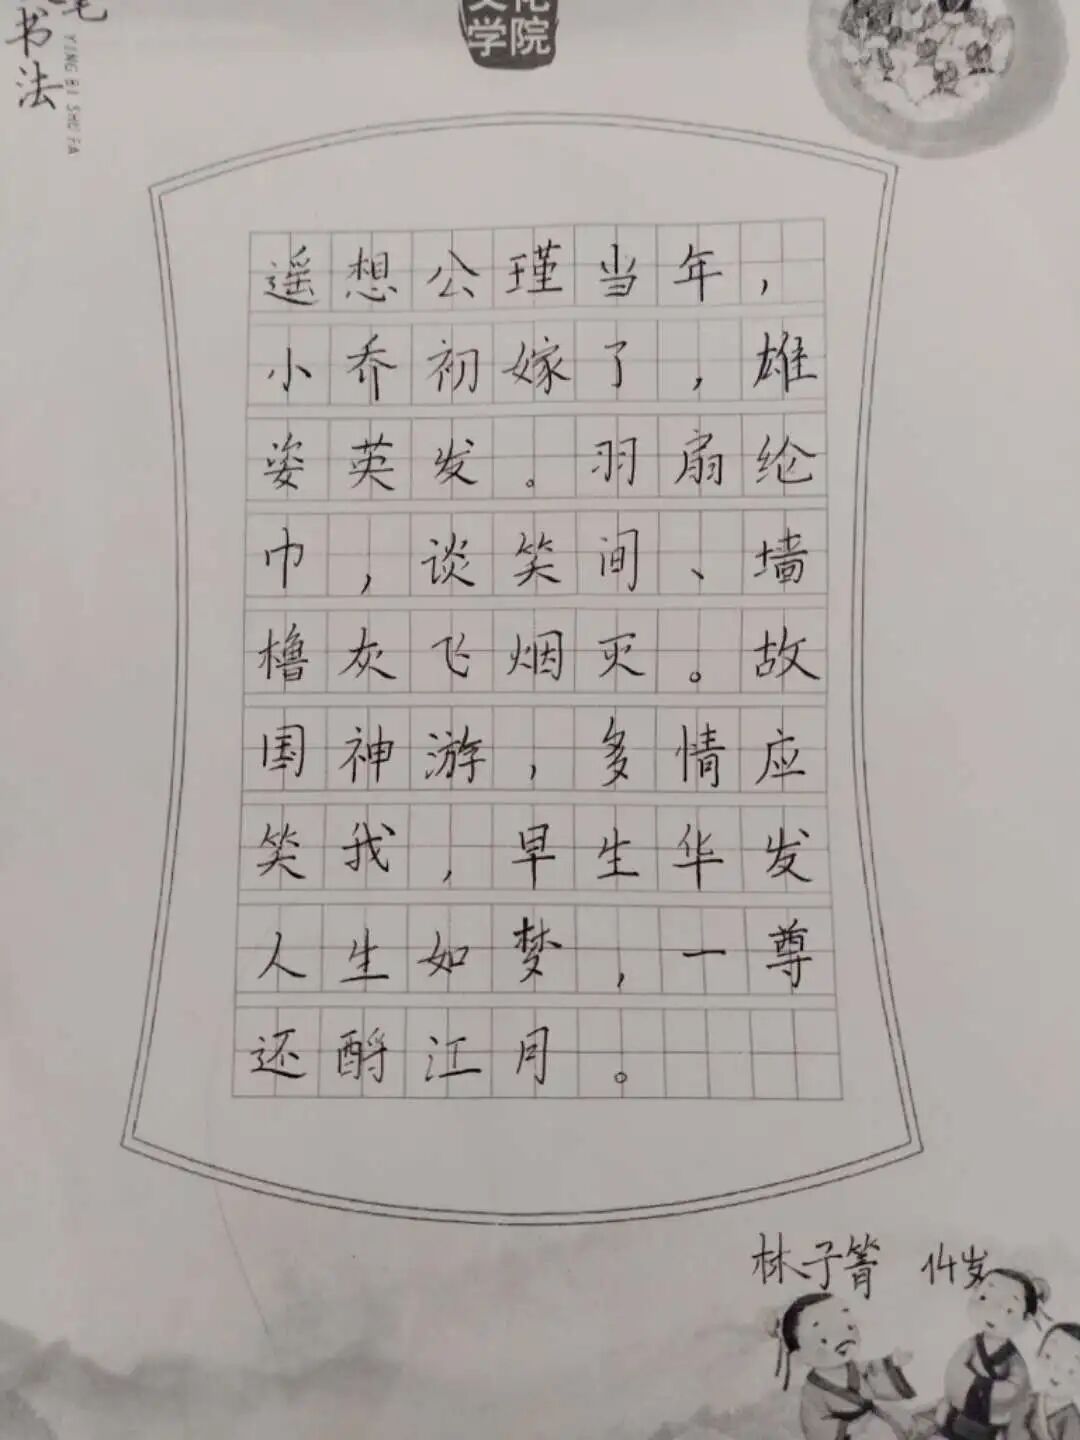 书法
YING BI SHU FA
学院
遥想公瑾当年，
小乔初嫁了，雄
姿英发。羽扇纶
巾，谈笑间、墙
橹灰飞烟灭。故
国神游，多情应
笑我，早生华发
人生如梦，一尊
还酹江月。
林子箐 14岁